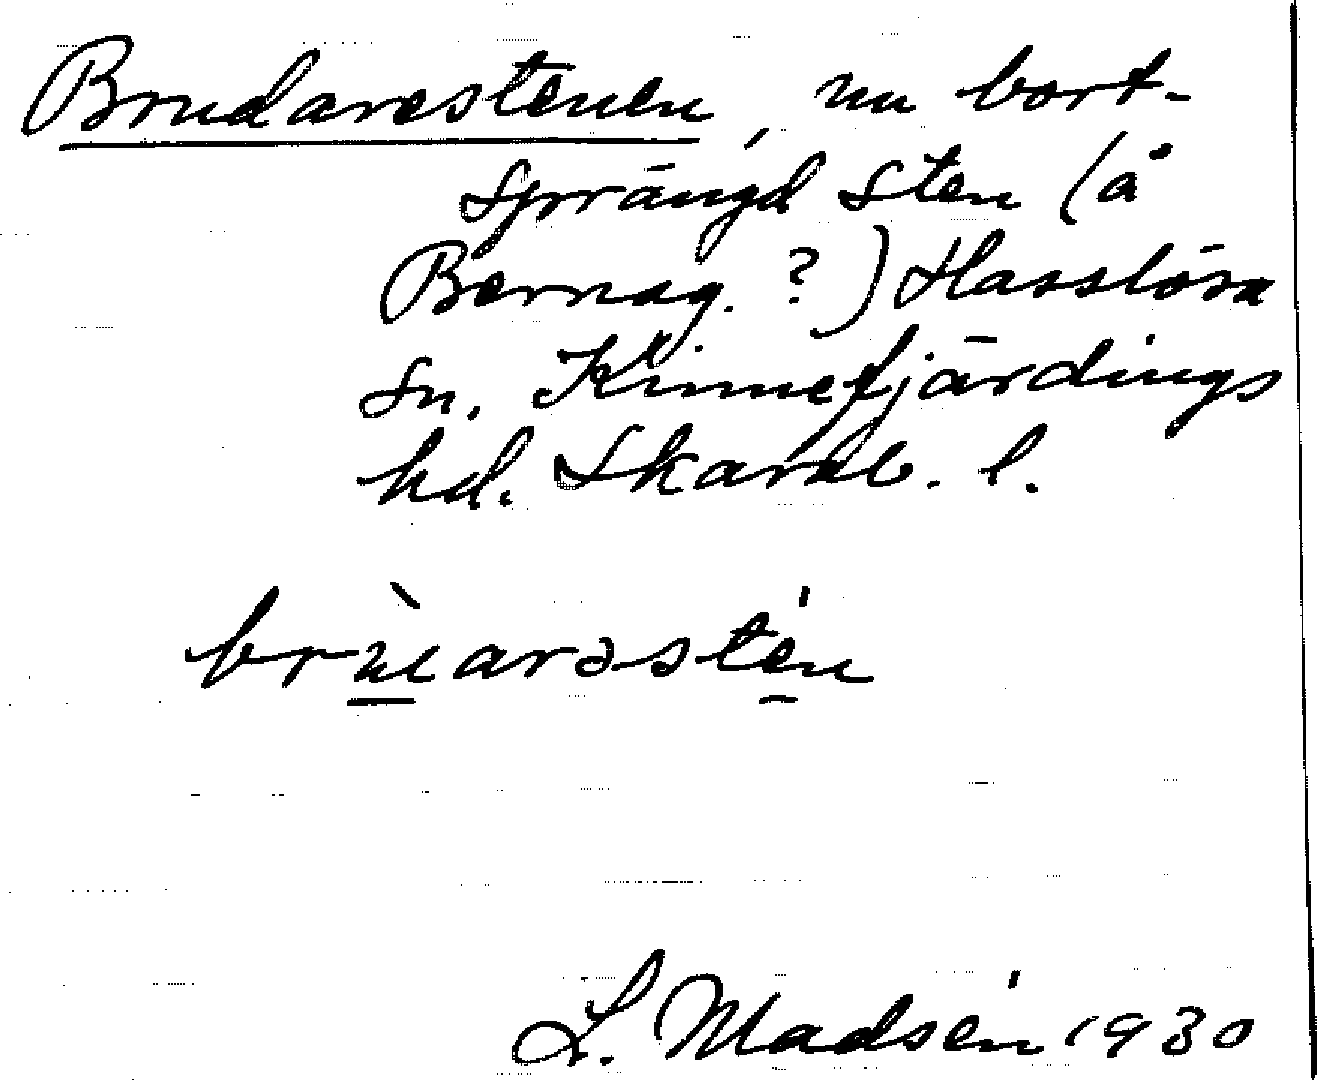 Brudarestenen, nu bort-
sprängd sten (å
Bernag. ?) Hasslösa
sn. Kinnefjärdings
hd. Skarab. l.
brùarəstén
L. Madsén 1930